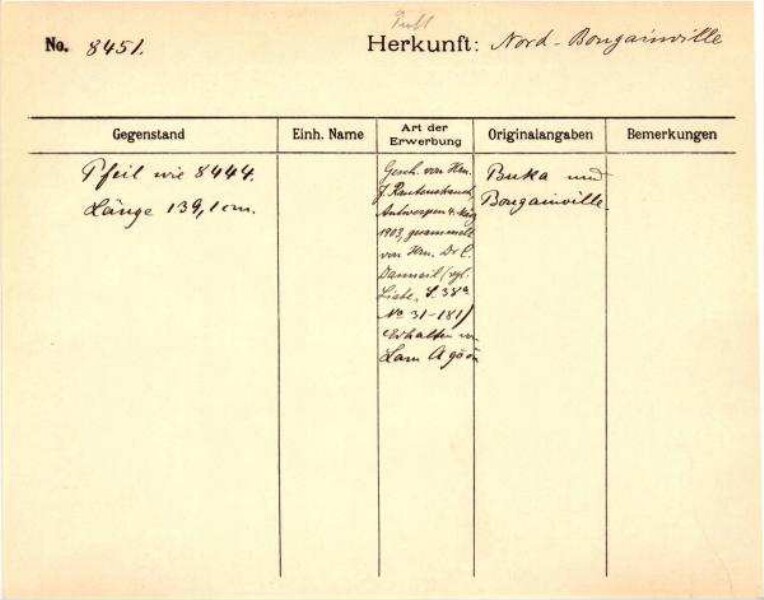 No. 8451.
Herkunft: Nord-Bougainville
Gegenstand
Einh. Name
Art der
Erwerbung
Originalangaben
Bemerkungen
Pfeil wie 8444.
Länge 139,1 cm.
Gesch. von Hrn.
J. Rautenstrauch,
Antwerpen 4. März
1903, gesammelt
von Hrn. Dr C.
Danneil (vgl.
Liste, S. 38a
No 31-181)
Erhalten in
Lam
Buka und
Bougainville.